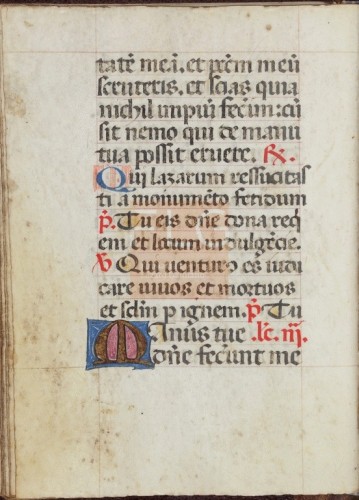 tatē meā. et pctm̄ meū
scruteris. et scias quia
nichil impiū fecim: cū
sit nemo qui de manu
tua possit eruere. ℟.
Qui lazarum ressucitas
ti a monumēto fetidum
p̄. Tu eis dn̄e dona req
em et locum indulgēcie.
℣ Qui uenturo es iudi
care uiuos et mortuos
et sclm p ignem. p̄. Tu
Manus tue .lc. iii.
dn̄e fecunt me